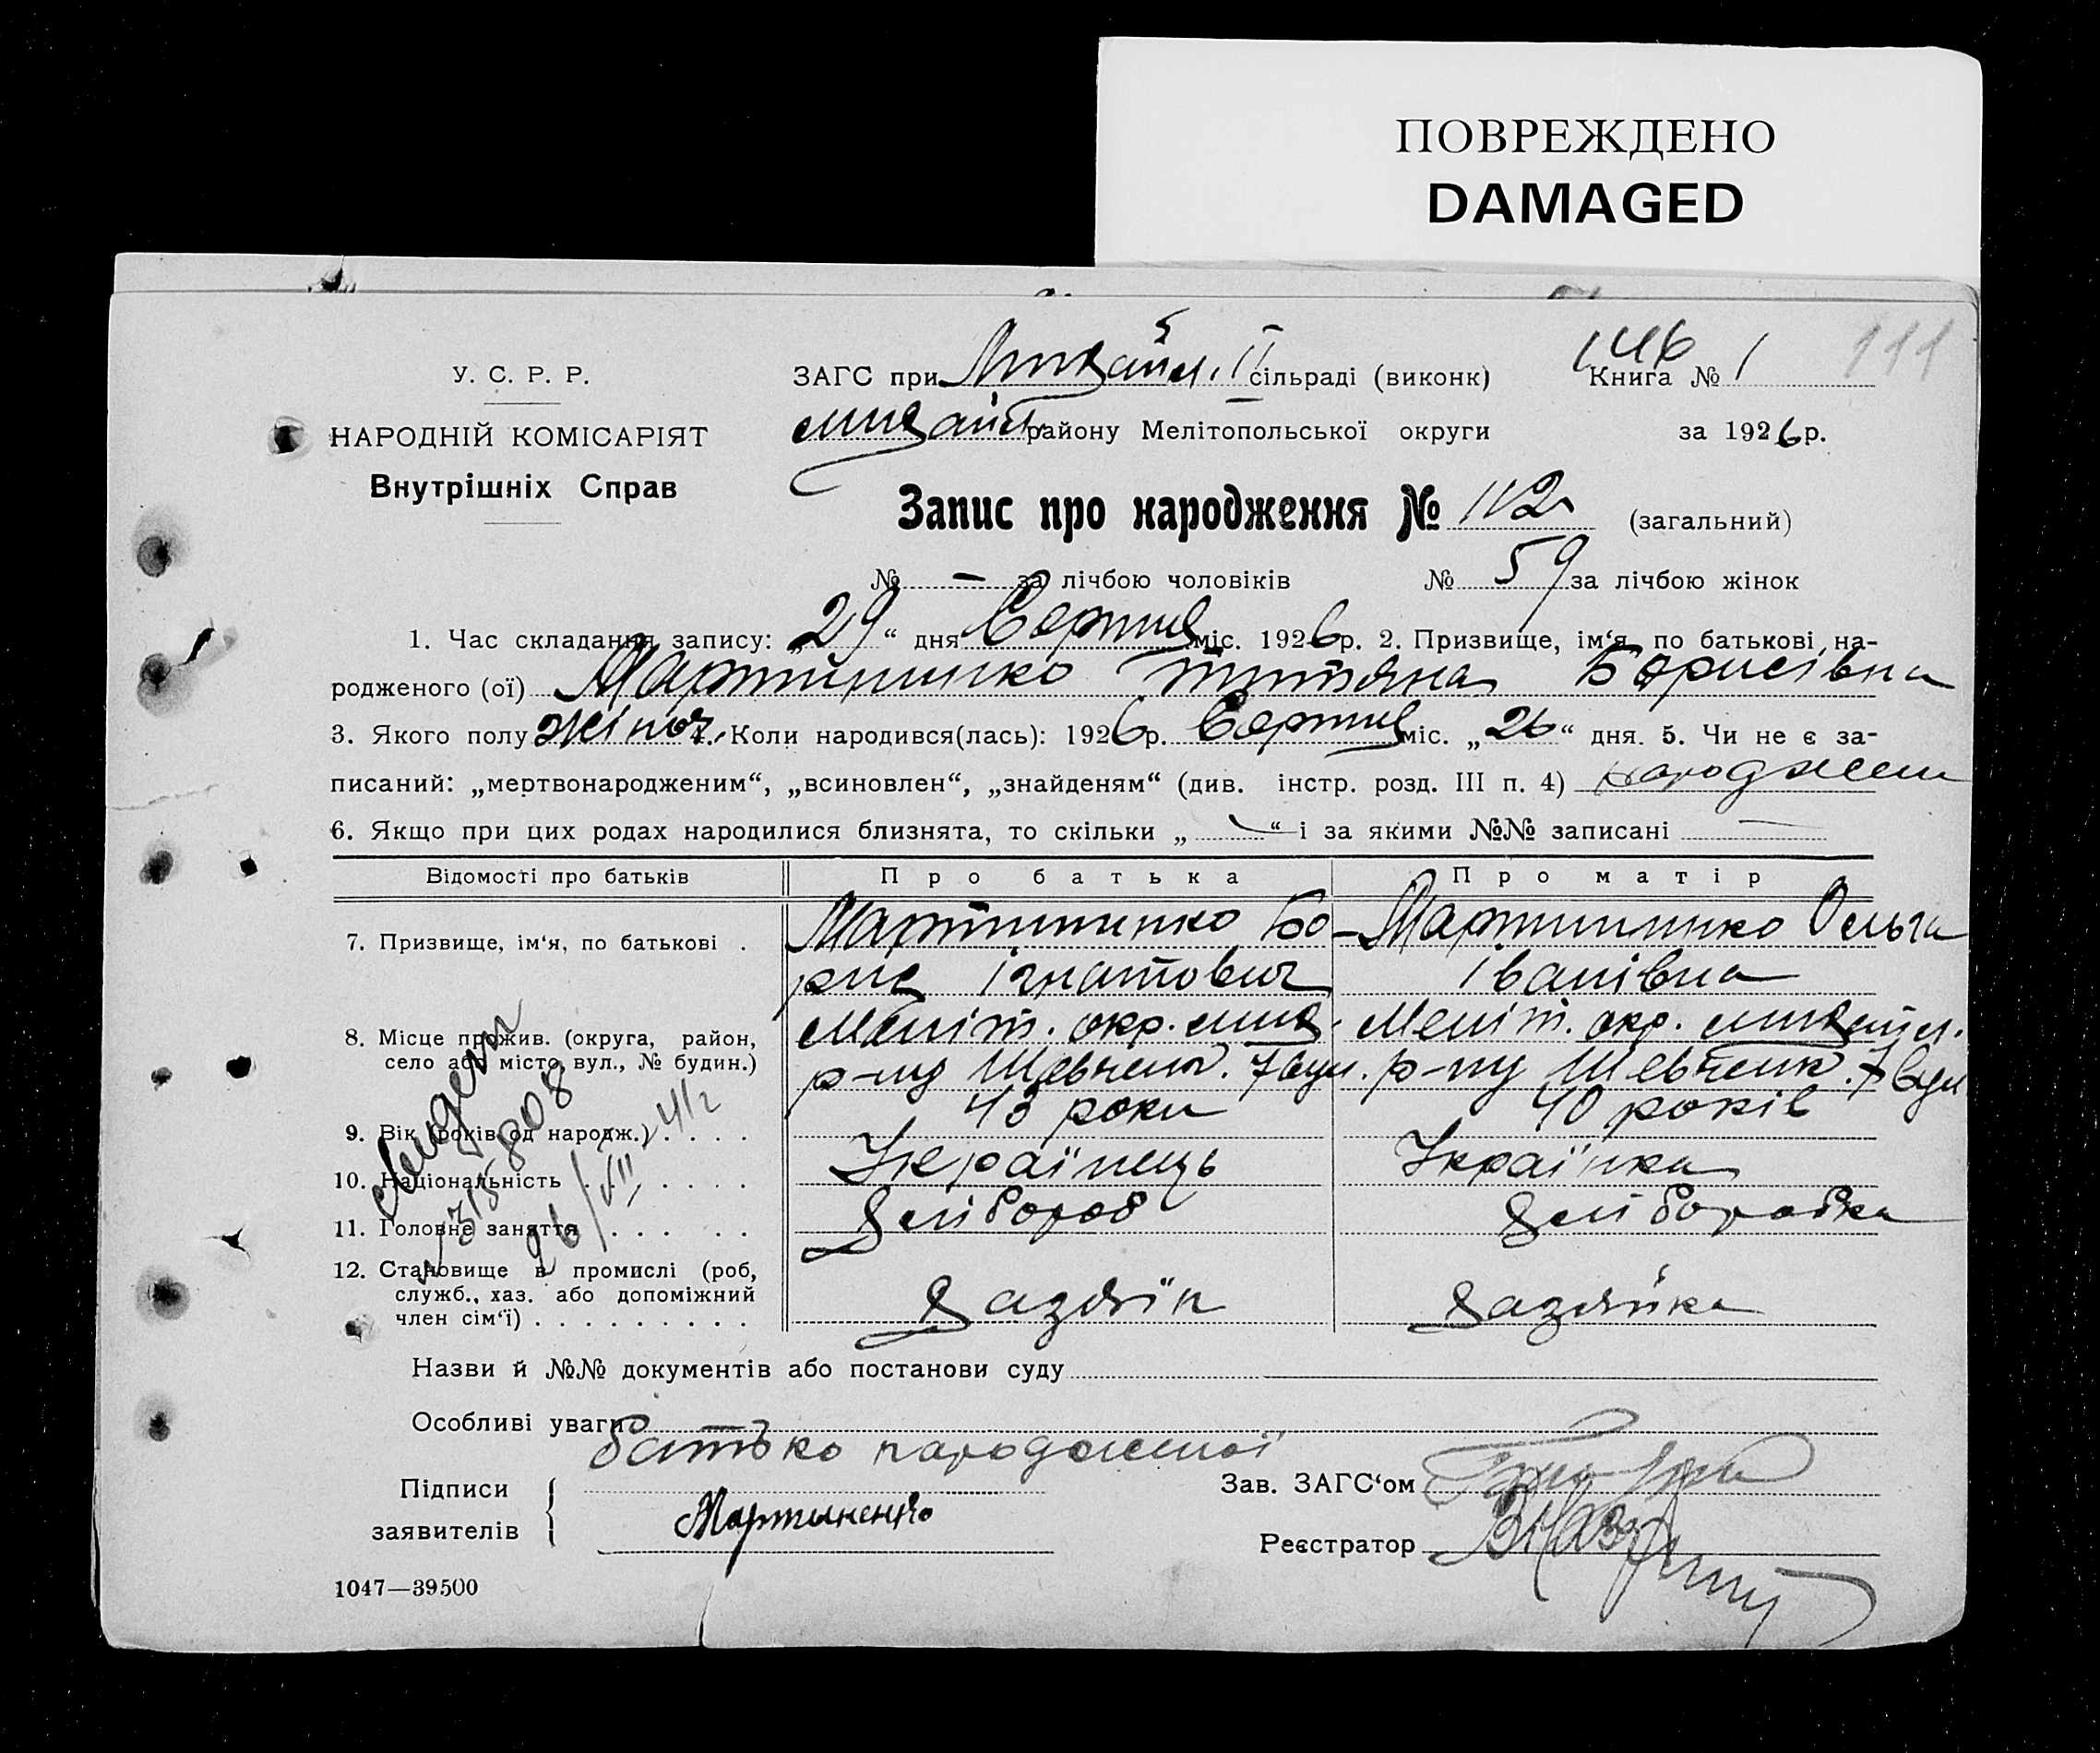 ПОВРЕЖДЕНО
DAMAGED
146 111
У. С. Р. Р.
ЗАГС при Михайл. ІІ сільраді (виконк) Книга № 1
НАРОДНІЙ КОМІСАРІЯТ
михайл. району Мелітопольської округи за 1926 р.
Внутрішніх Справ
Запис про народження № 112 (загальний)
№ – за лічбою чоловіків № 59 за лічбою жінок
1. Час складання запису: „29“ дня Серпня міс. 1926 р. 2. Призвище, ім‘я, по батькові на-
родженого (ої) Мартиненко Титяна Борисівна
3. Якого полу жіноч. 4. Коли народився(лась): 1926 р. Серпня міс. „26“ дня. 5. Чи не є за-
писаний: „мертвонародженим“, „всиновлен“, „знайденям“ (див. інстр. розд. III п. 4) народжена
6. Якщо при цих родах народилися близнята, то скільки „ — “ і за якими №№ записані —
Відомості про батьків Про батька Про матір
7. Призвище, ім‘я, по батькові . Мартиненко Бо- Мартиненко Ольга
рис Ігнатович Іванівна
8. Місце прожив. (округа, район, Меліт. окр. мих. Меліт. окр. михайл.
село або місто, вул., № будин.) р-ну Шевченк. 7 вул. р-ну Шевченк. 7 вул.
9. Вік (років од народж.) . . . . 43 роки 40 років
10. Національність . . . . . Українець Українка
11. Головне заняття . . . . . Хлібороб Хліборобка
12. Становище в промислі (роб,
служб., хаз. або допоміжний
член сім‘ї) . . . . . . . . . Хазяїн Хазяйка
315808
26/XII 41г
Назви й №№ документів або постанови суду
Особливі уваги
батько народженої
Підписи
заявителів
Мартыненко
Зав. ЗАГС‘ом
Реєстратор
1047—39500